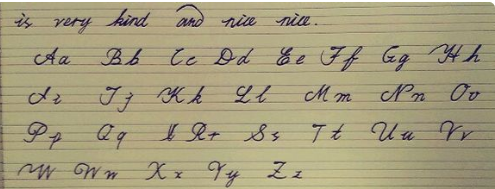 is very kind and nice nice.
Aa Bb Cc Dd Ee Ff Gg Hh
Ii Jj Kk Ll Mm Nn Oo
Pp Qq Rr Ss Tt Uu Vv
W Ww Xx Yy Zz